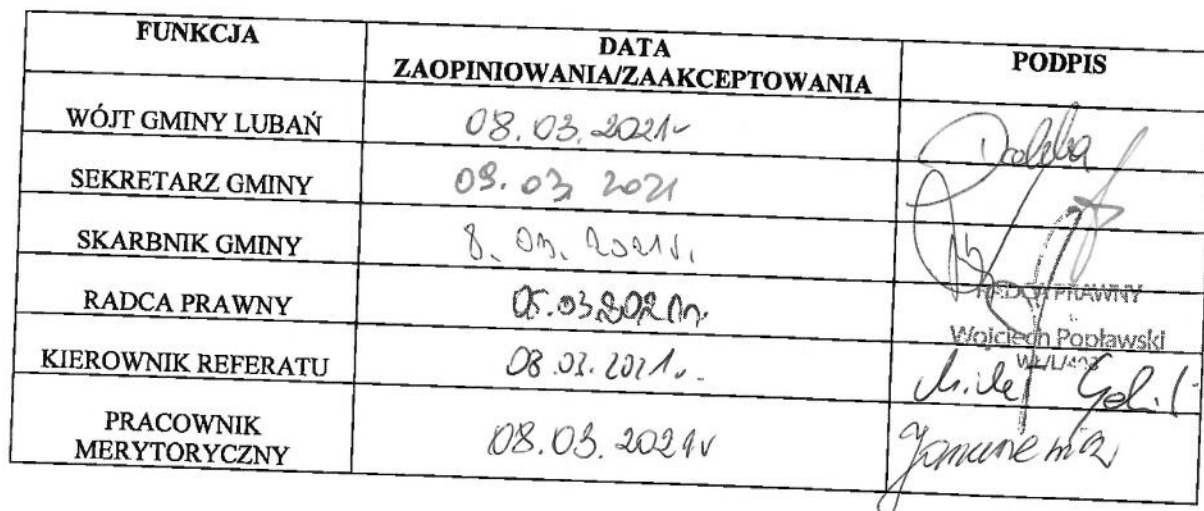 FUNKCJA
DATA
ZAOPINIOWANIA/ZAAKCEPTOWANIA
PODPIS
WÓJT GMINY LUBAŃ
08.03.2021r
SEKRETARZ GMINY
09.03 2021
SKARBNIK GMINY
8. 03. 2021r.
RADCA PRAWNY
05.03.2021r.
RADCA PRAWNY
Wojciech Popławski
KIEROWNIK REFERATU
08.03.2021r.
PRACOWNIK
MERYTORYCZNY
08.03.2021r